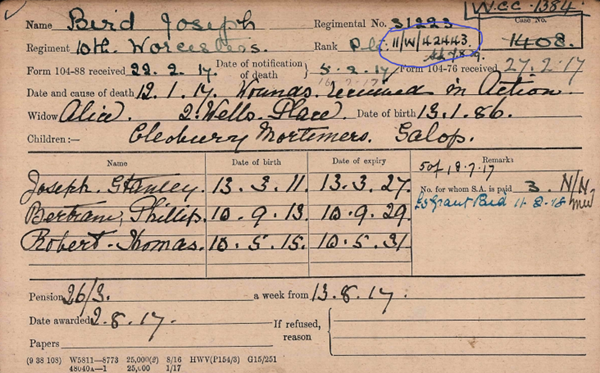 W.C.C. 1384.
Name Bird Joseph Regimental No. 31223 Case No.
Regiment 10th Worcesters. Rank Pte 11/W/42443. 1408.
Form 104-88 received 22.2.17. Date of notification of death 5.2.17 Form 104-76 received 27.2.17
Date and cause of death 12.1.17. Wounds received in Action.
Widow Alice. 2 Wells Place Date of birth 13.1.86.
Children:— Cleobury Mortimers. Salop.
Name Date of birth Date of expiry Remarks
Joseph Stanley. 13.3.11. 13.3.27. 5of. 18.7.17
Bertram Phillip 10.9.13. 10.9.29. No. for whom S.A. is paid 3. N/N
Robert Thomas. 10.5.15. 10.5.31 £5 Grant Paid 11-2-18
Pension 26/3. a week from 13.8.17.
Date awarded 2.8.17. If refused, reason
Papers
(9 38 103) W5811—8773 25,000(d) 8/16 HWV(P154/3) G15/251
48040a—1 25,000 1/17